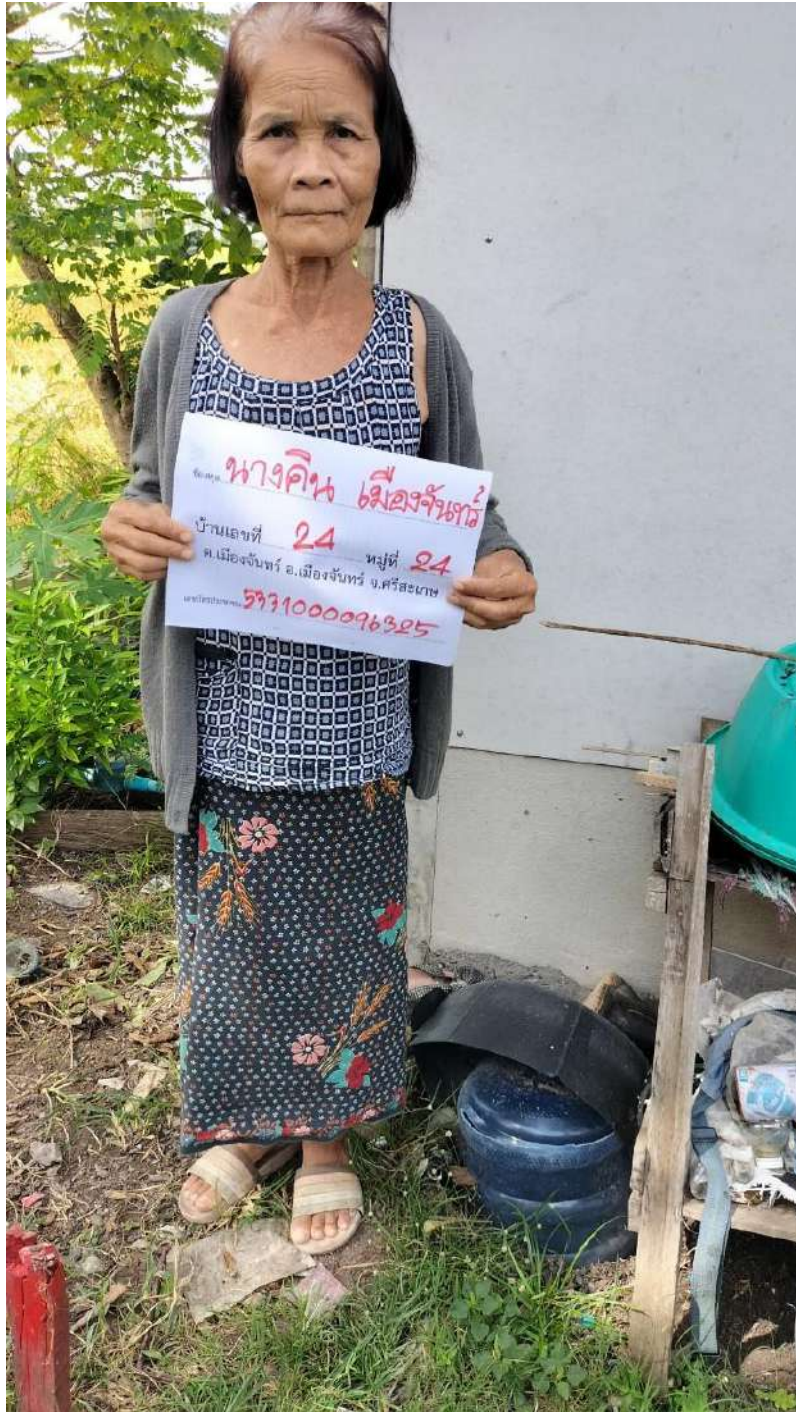 ชื่อ-สกุล นางคืน เมืองจันทร์
บ้านเลขที่ 24 หมู่ที่ 24
ต.เมืองจันทร์ อ.เมืองจันทร์ จ.ศรีสะเกษ
เลขบัตรประชาชน 5331000096325